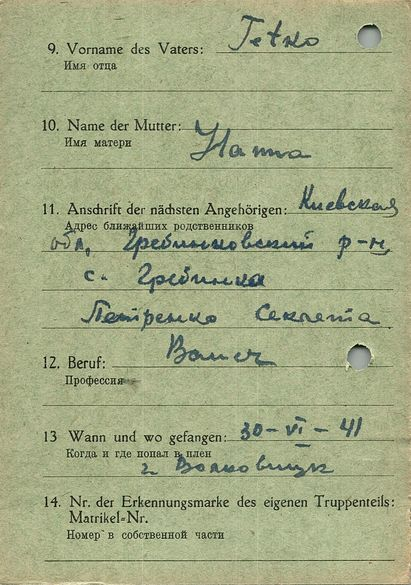 9. Vorname des Vaters: Petro
Имя отца
10. Name der Mutter:
Имя матери
Hanna
11. Anschrift der nächsten Angehörigen: Киевская
Адрес ближайших родственников
обл, Гребинковский р-н,
с. Гребинка
Петренко Секлета
12. Beruf: Bauer
Профессия
13 Wann und wo gefangen: 30-VI-41
Когда и где попал в плен
г. Волковишк
14. Nr. der Erkennungsmarke des eigenen Truppenteils:
Matrikel-Nr.
Номер в собственной части